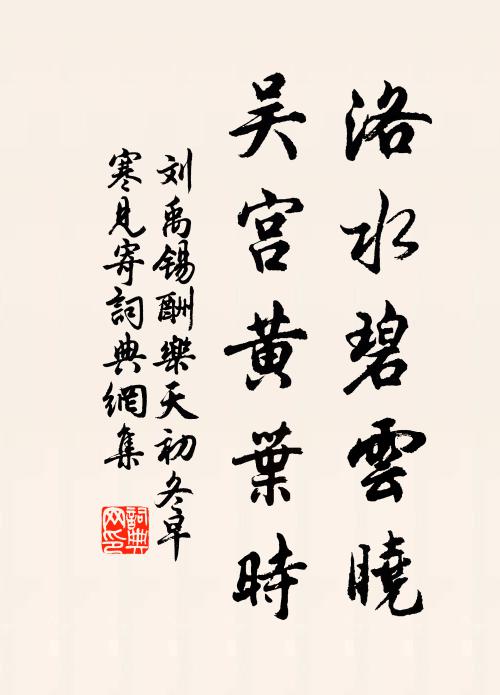 洛水碧雲曉
吴宫黄葉時
刘禹锡酬樂天初冬早
寒見寄詞典網集
詞典
网印